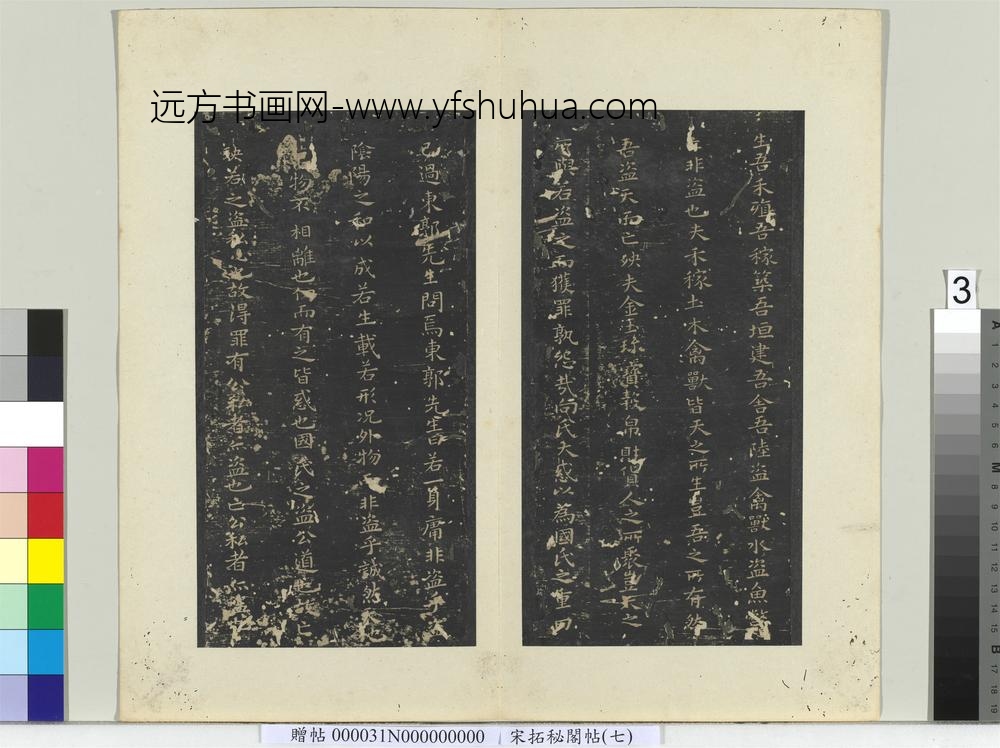 远方书画网-www.yfshuhua.com
生吾禾殖吾稼築吾垣建吾舍吾陸盜禽獸水盜魚鱉
非盜也夫禾稼土木禽獸皆天之所生豈吾之所有然
吾盜天而亡殃夫金玉珍寶穀帛財貨人之所聚豈天之
所與若盜之而獲罪孰怨哉向氏大惑以為國氏之重罔
己過東郭先生問焉東郭先生曰若一身庸非盜乎
陰陽之和以成若生載若形況外物而非盜乎誠然天地
物不相離也仞而有之皆惑也國氏之盜公道也故亡
殃若之盜私心也故得罪有公私者亦盜也亡公私者亦盜
3
贈帖 000031N000000000 宋拓秘閣帖(七)
A 1 2 3 4 5 6 M 8 9 10 11 12 13 14 15 B 17 18 19